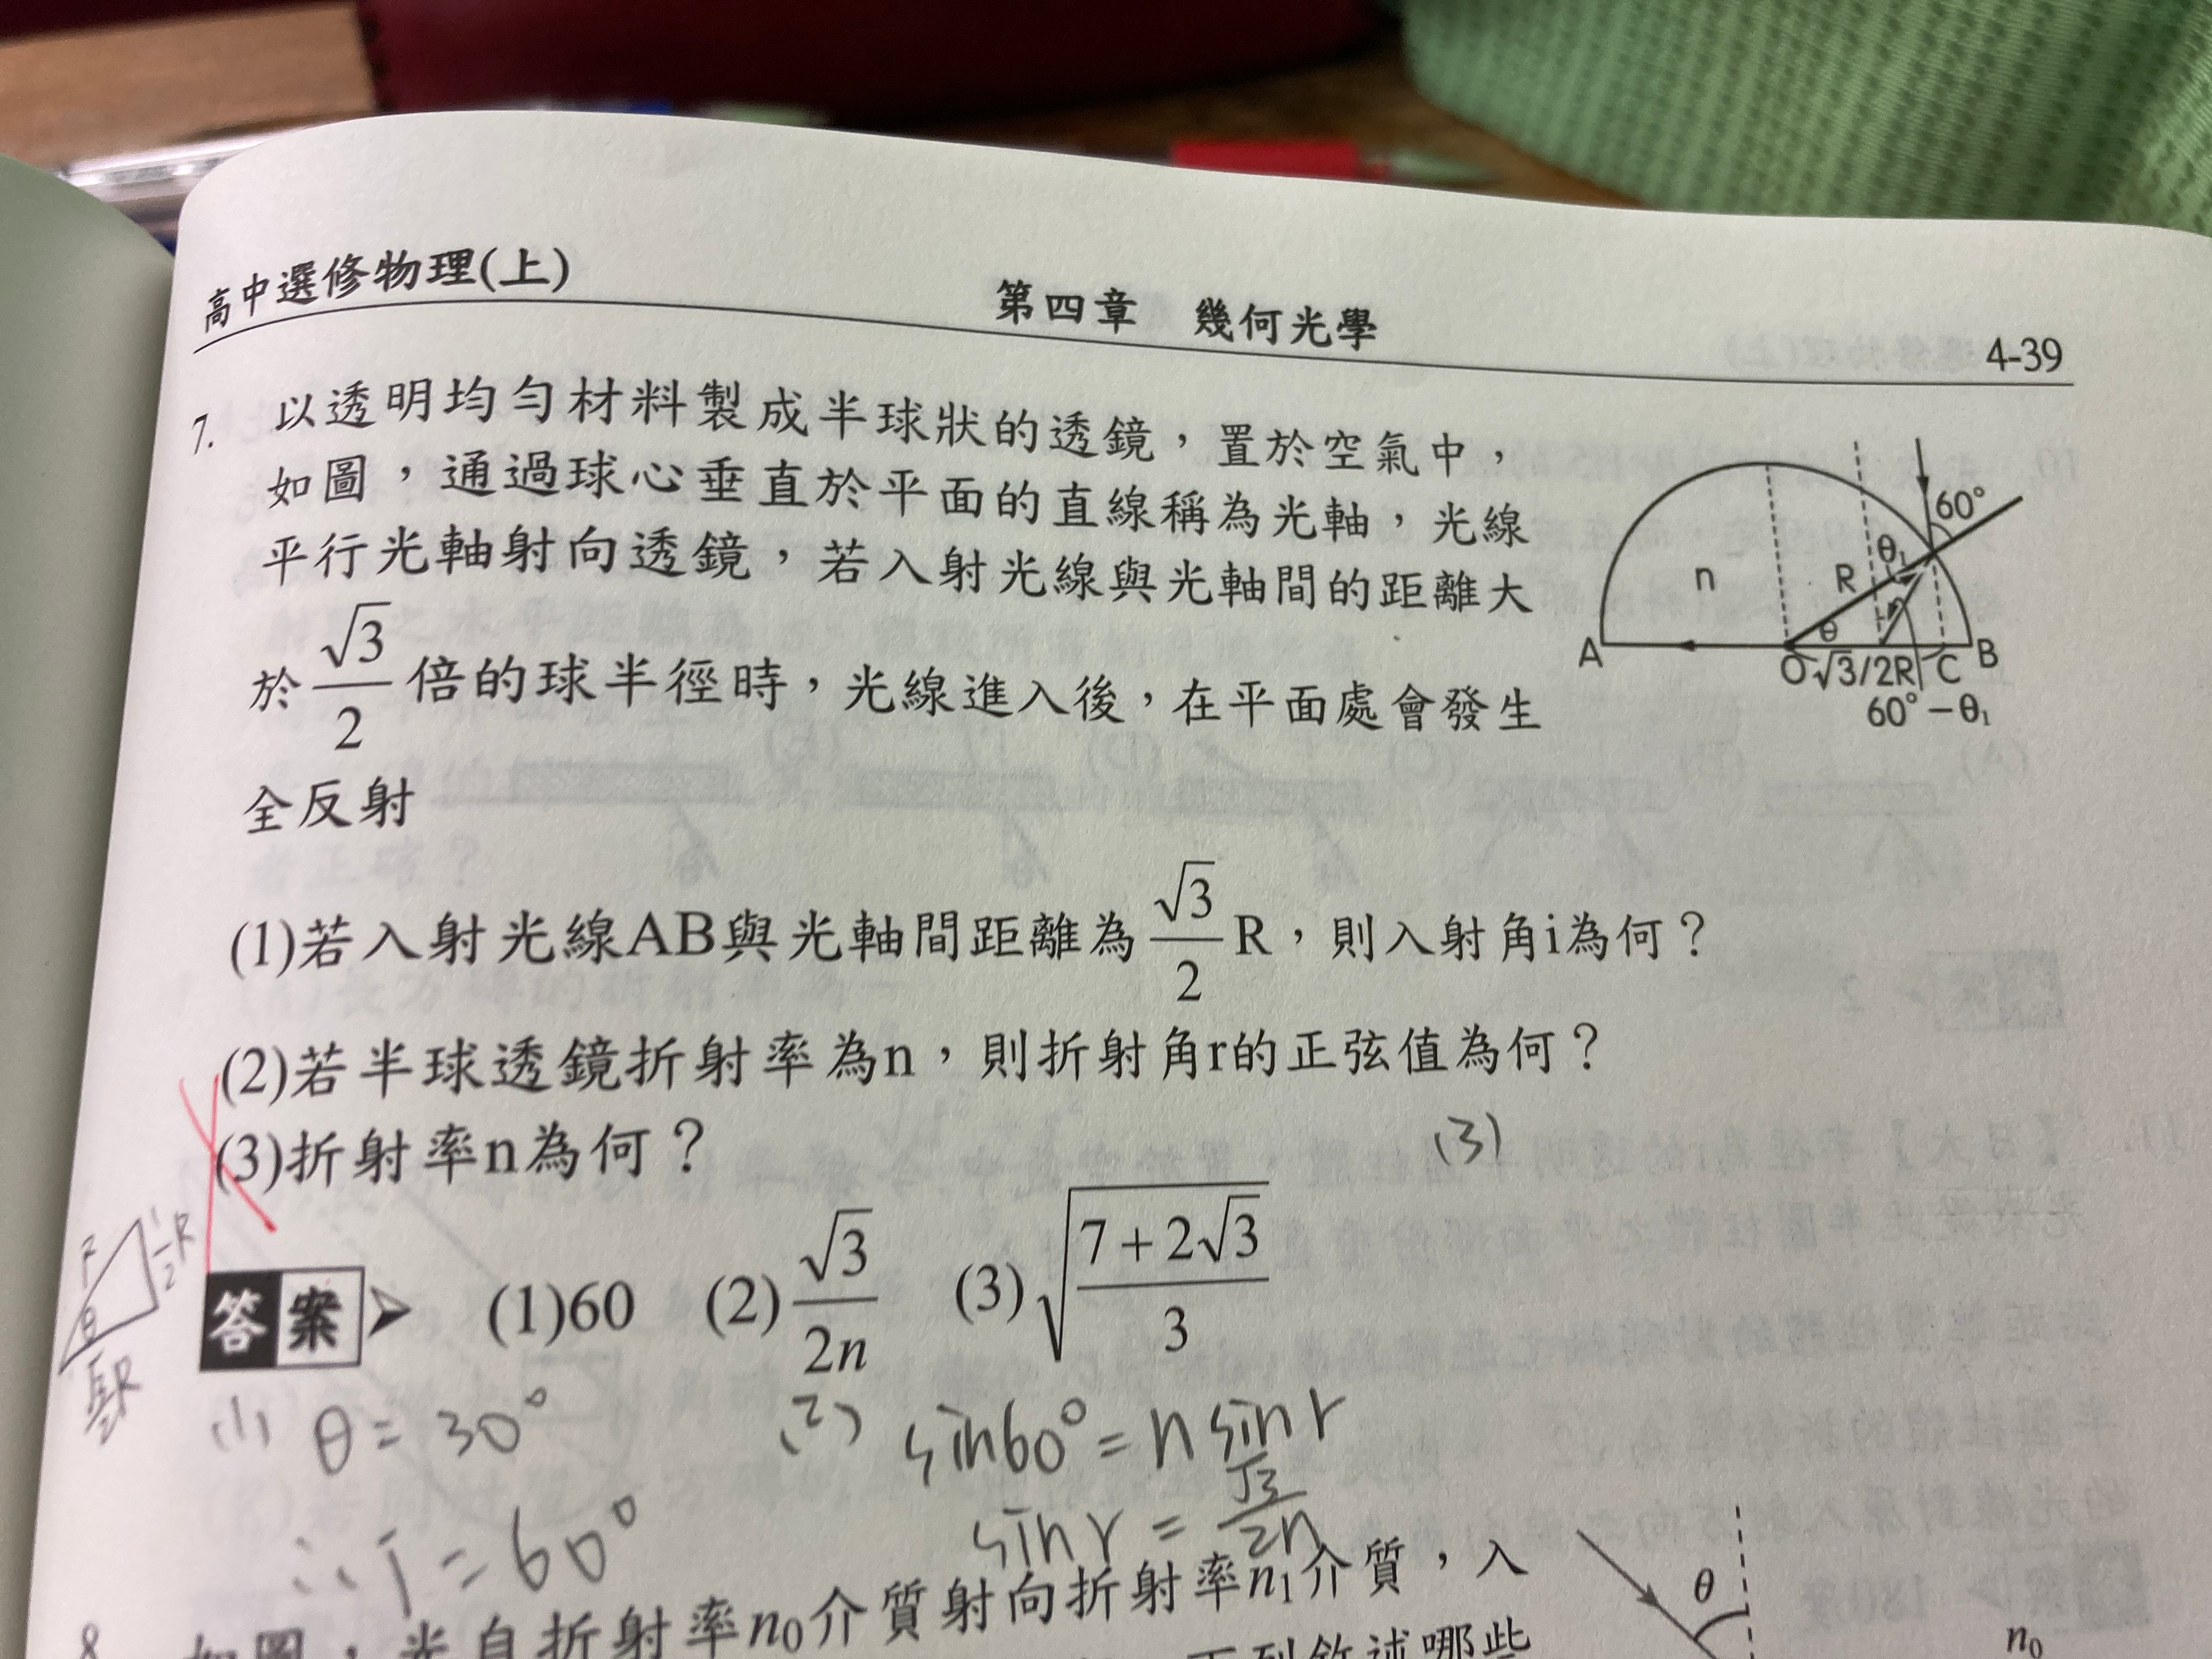 高中選修物理(上)
第四章 幾何光學
4-39
7. 以透明均勻材料製成半球狀的透鏡，置於空氣中，
如圖，通過球心垂直於平面的直線稱為光軸，光線
平行光軸射向透鏡，若入射光線與光軸間的距離大
於 √3/2 倍的球半徑時，光線進入後，在平面處會發生
全反射
60°
θ₁
n
R
θ
A
O √3/2R C B
60°－θ₁
(1)若入射光線AB與光軸間距離為 √3/2 R，則入射角i為何？
(2)若半球透鏡折射率為n，則折射角r的正弦值為何？
(3)折射率n為何？
(3)
答案 (1)60 (2) √3/2n (3) √((7+2√3)/3)
R
½R
θ
(1) θ = 30°
∴ i = 60°
(2) sin60° = n sin r
sin r = √3/2n
8
如圖，光自折射率n₀介質射向折射率n₁介質，入
下列敘述哪些
θ
n₀